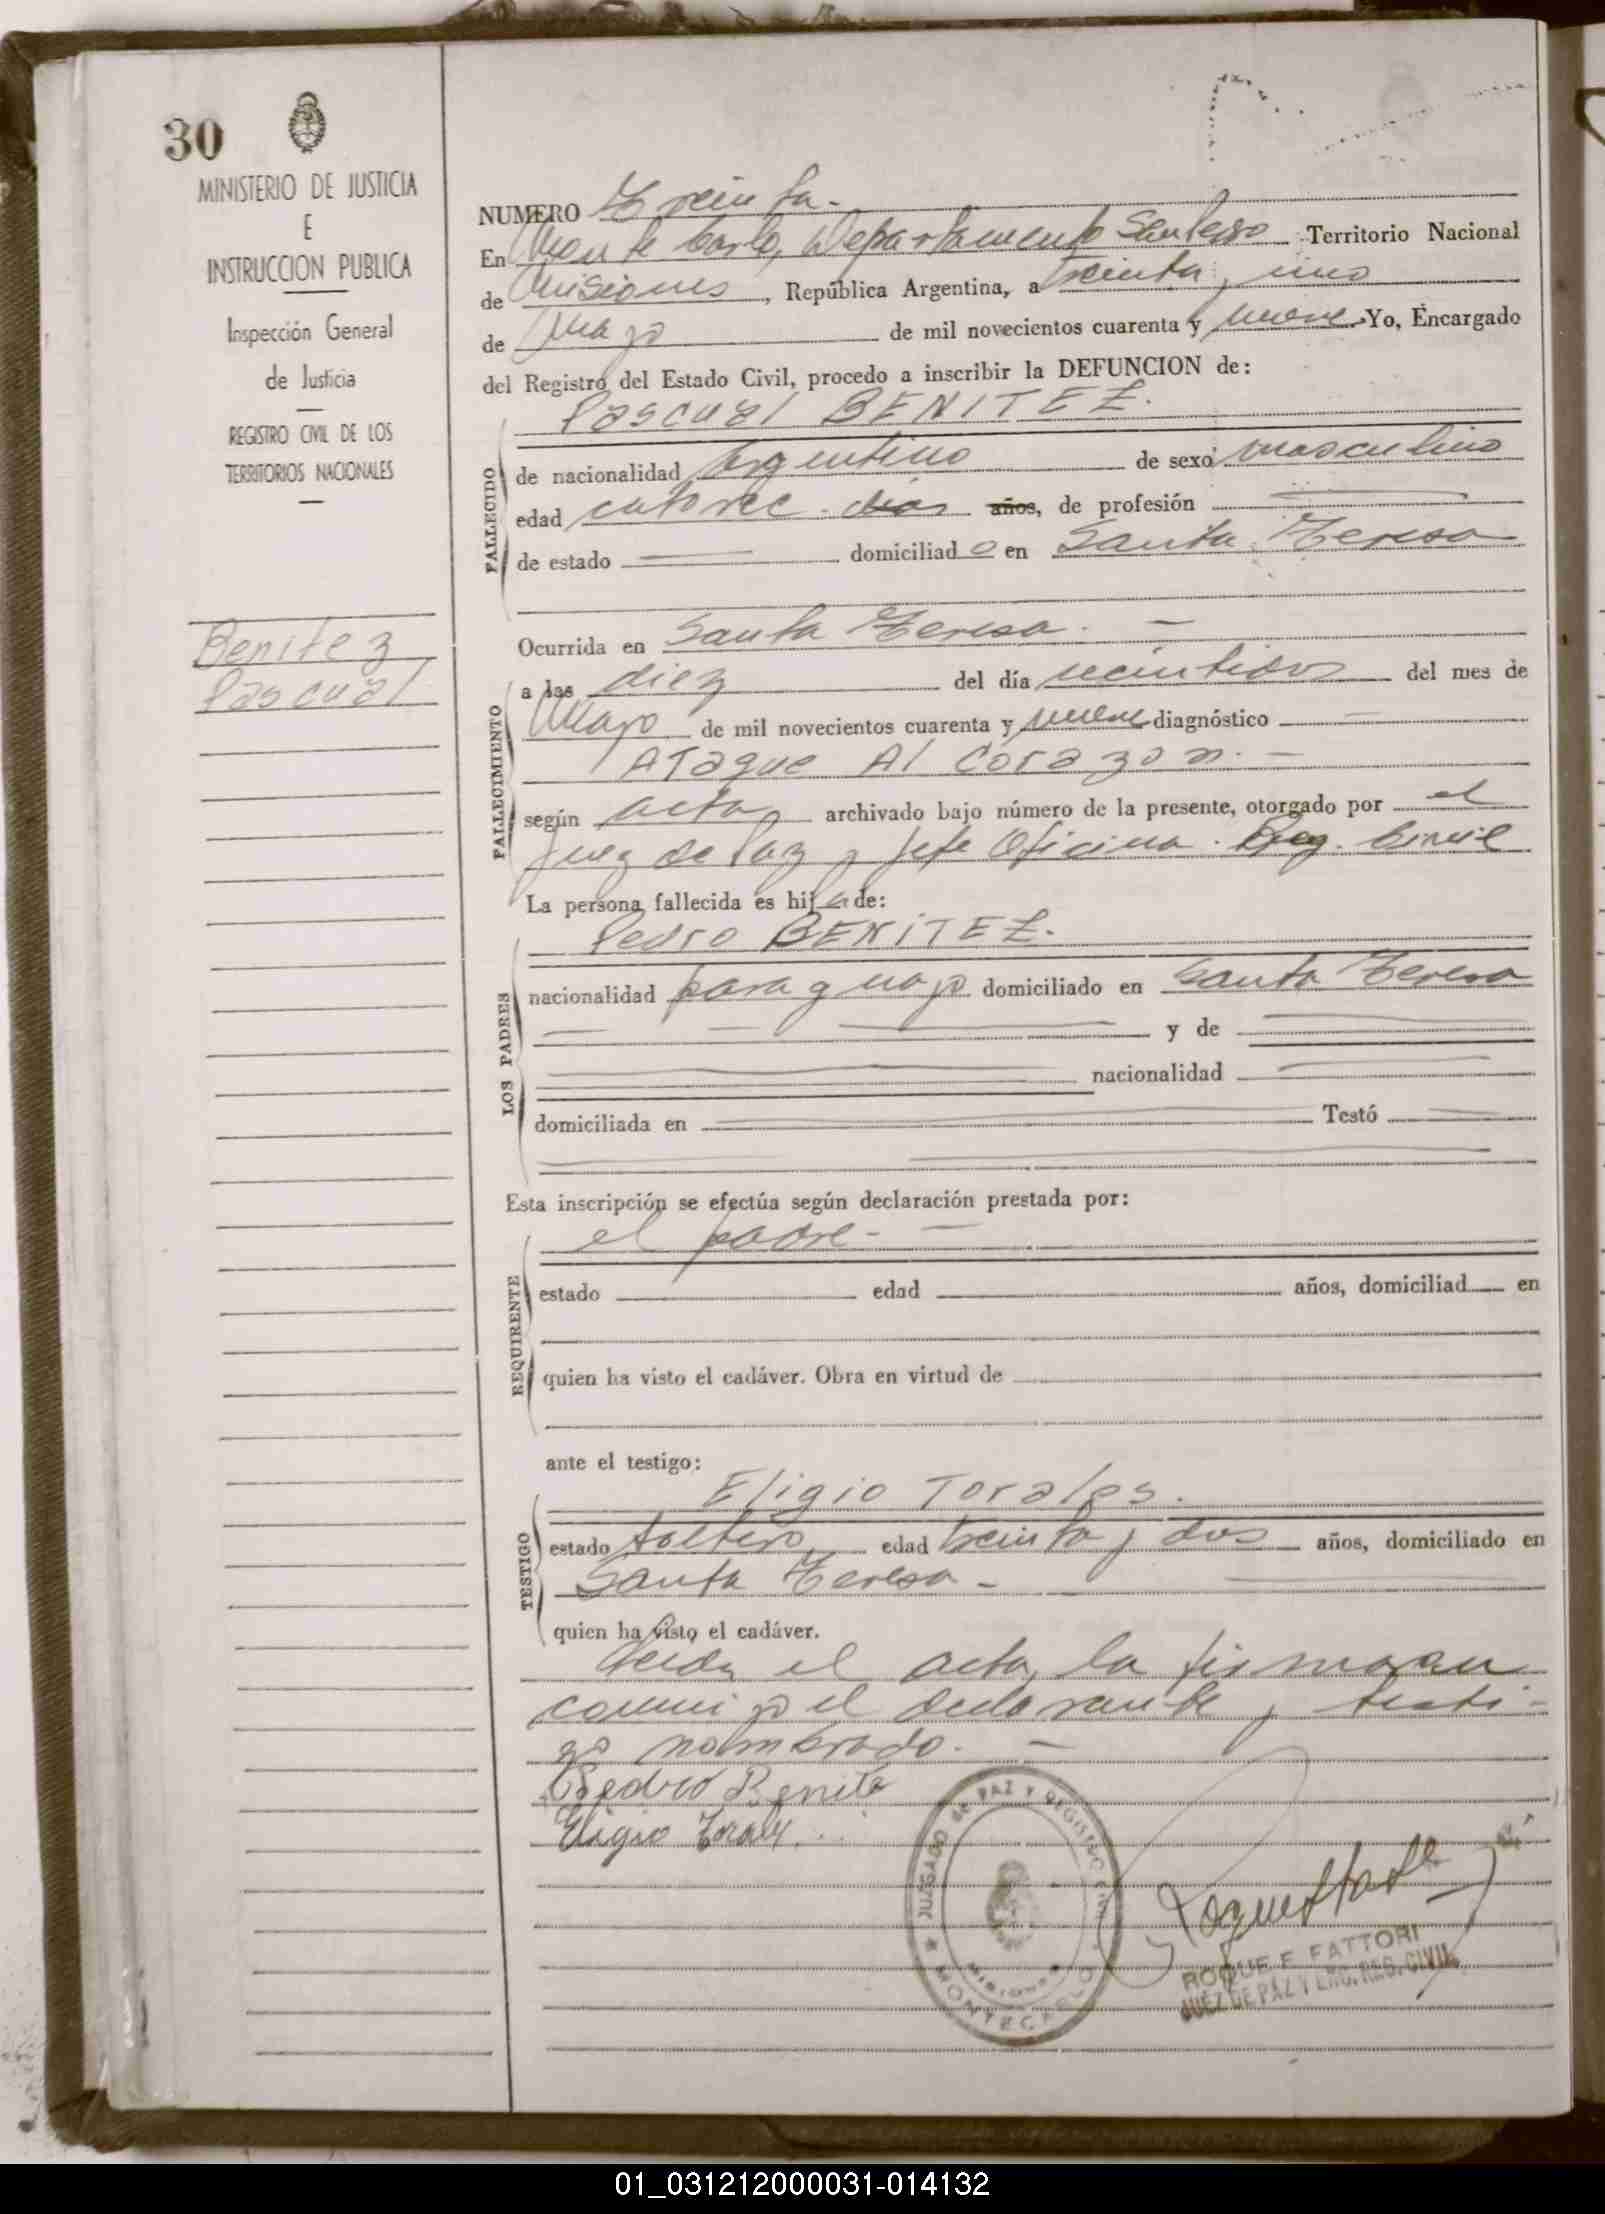 30
MINISTERIO DE JUSTICIA
E
INSTRUCCION PUBLICA
Inspección General
de Justicia
REGISTRO CIVIL DE LOS
TERRITORIOS NACIONALES
Benitez
Pascual
NUMERO Treinta.
En Monte Carlo, Departamento San Pedro Territorio Nacional
de Misiones, República Argentina, a treinta y uno
de Mayo de mil novecientos cuarenta y nueve Yo, Encargado
del Registro del Estado Civil, procedo a inscribir la DEFUNCION de:
Pascual BENITEZ.
FALLECIDO
de nacionalidad Argentino de sexo masculino
edad catorce dias años, de profesión
de estado domiciliado en Santa Teresa
FALLECIMIENTO
Ocurrida en Santa Teresa.
a las diez del día veintidos del mes de
Mayo de mil novecientos cuarenta y nueve diagnóstico
ATaque Al Corazon.
según acta archivado bajo número de la presente, otorgado por el
Juez de Paz y Jefe Oficina Reg. Civil
La persona fallecida es hijo de:
LOS PADRES
Pedro BENITEZ.
nacionalidad paraguayo domiciliado en Santa Teresa
y de
nacionalidad
domiciliada en Testó
Esta inscripción se efectúa según declaración prestada por:
REQUIRENTE
el padre-
estado edad años, domiciliad en
quien ha visto el cadáver. Obra en virtud de
ante el testigo:
TESTIGO
Eligio Torales.
estado soltero, edad treinta y dos años, domiciliado en
Santa Teresa-
quien ha visto el cadáver.
Leida el acta, la firmaan
conmigo el declarante y testi-
go nombrado.
Pedro Benite
Eligio Torales
JUZGADO DE PAZ Y REGISTRO CIVIL
MISIONES
MONTECARLO
ROQUE F. FATTORI
JUEZ DE PAZ Y ENC. REG. CIVIL
01_031212000031-014132